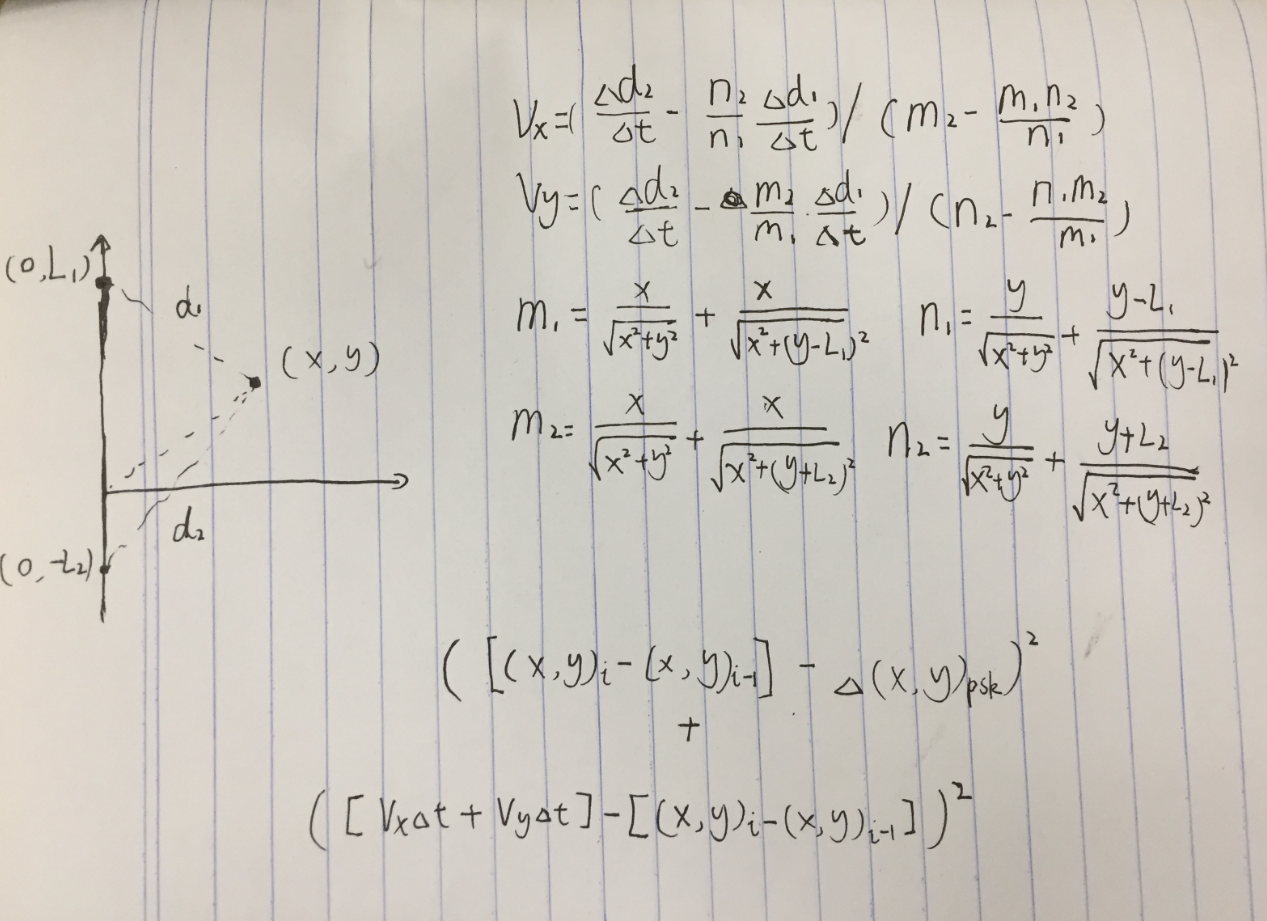 Vx=( Δd₂/Δt - n₂/n₁ Δd₁/Δt ) / ( m₂ - m₁n₂/n₁ )
Vy=( Δd₂/Δt - m₂/m₁ · Δd₁/Δt ) / ( n₂ - n₁m₂/m₁ )
(0,L₁)
d₁
(x,y)
d₂
(0,-L₂)
m₁ = x/√(x²+y²) + x/√(x²+(y-L₁)²) n₁ = y/√(x²+y²) + y-L₁/√(x²+(y-L₁)²)
m₂= x/√(x²+y²) + x/√(x²+(y+L₂)²) n₂ = y/√(x²+y²) + y+L₂/√(x²+(y+L₂)²)
( [(x,y)ᵢ - (x,y)ᵢ₋₁] - Δ(x,y)psk )²
+
( [ VxΔt + VyΔt ] - [(x,y)ᵢ - (x,y)ᵢ₋₁] )²